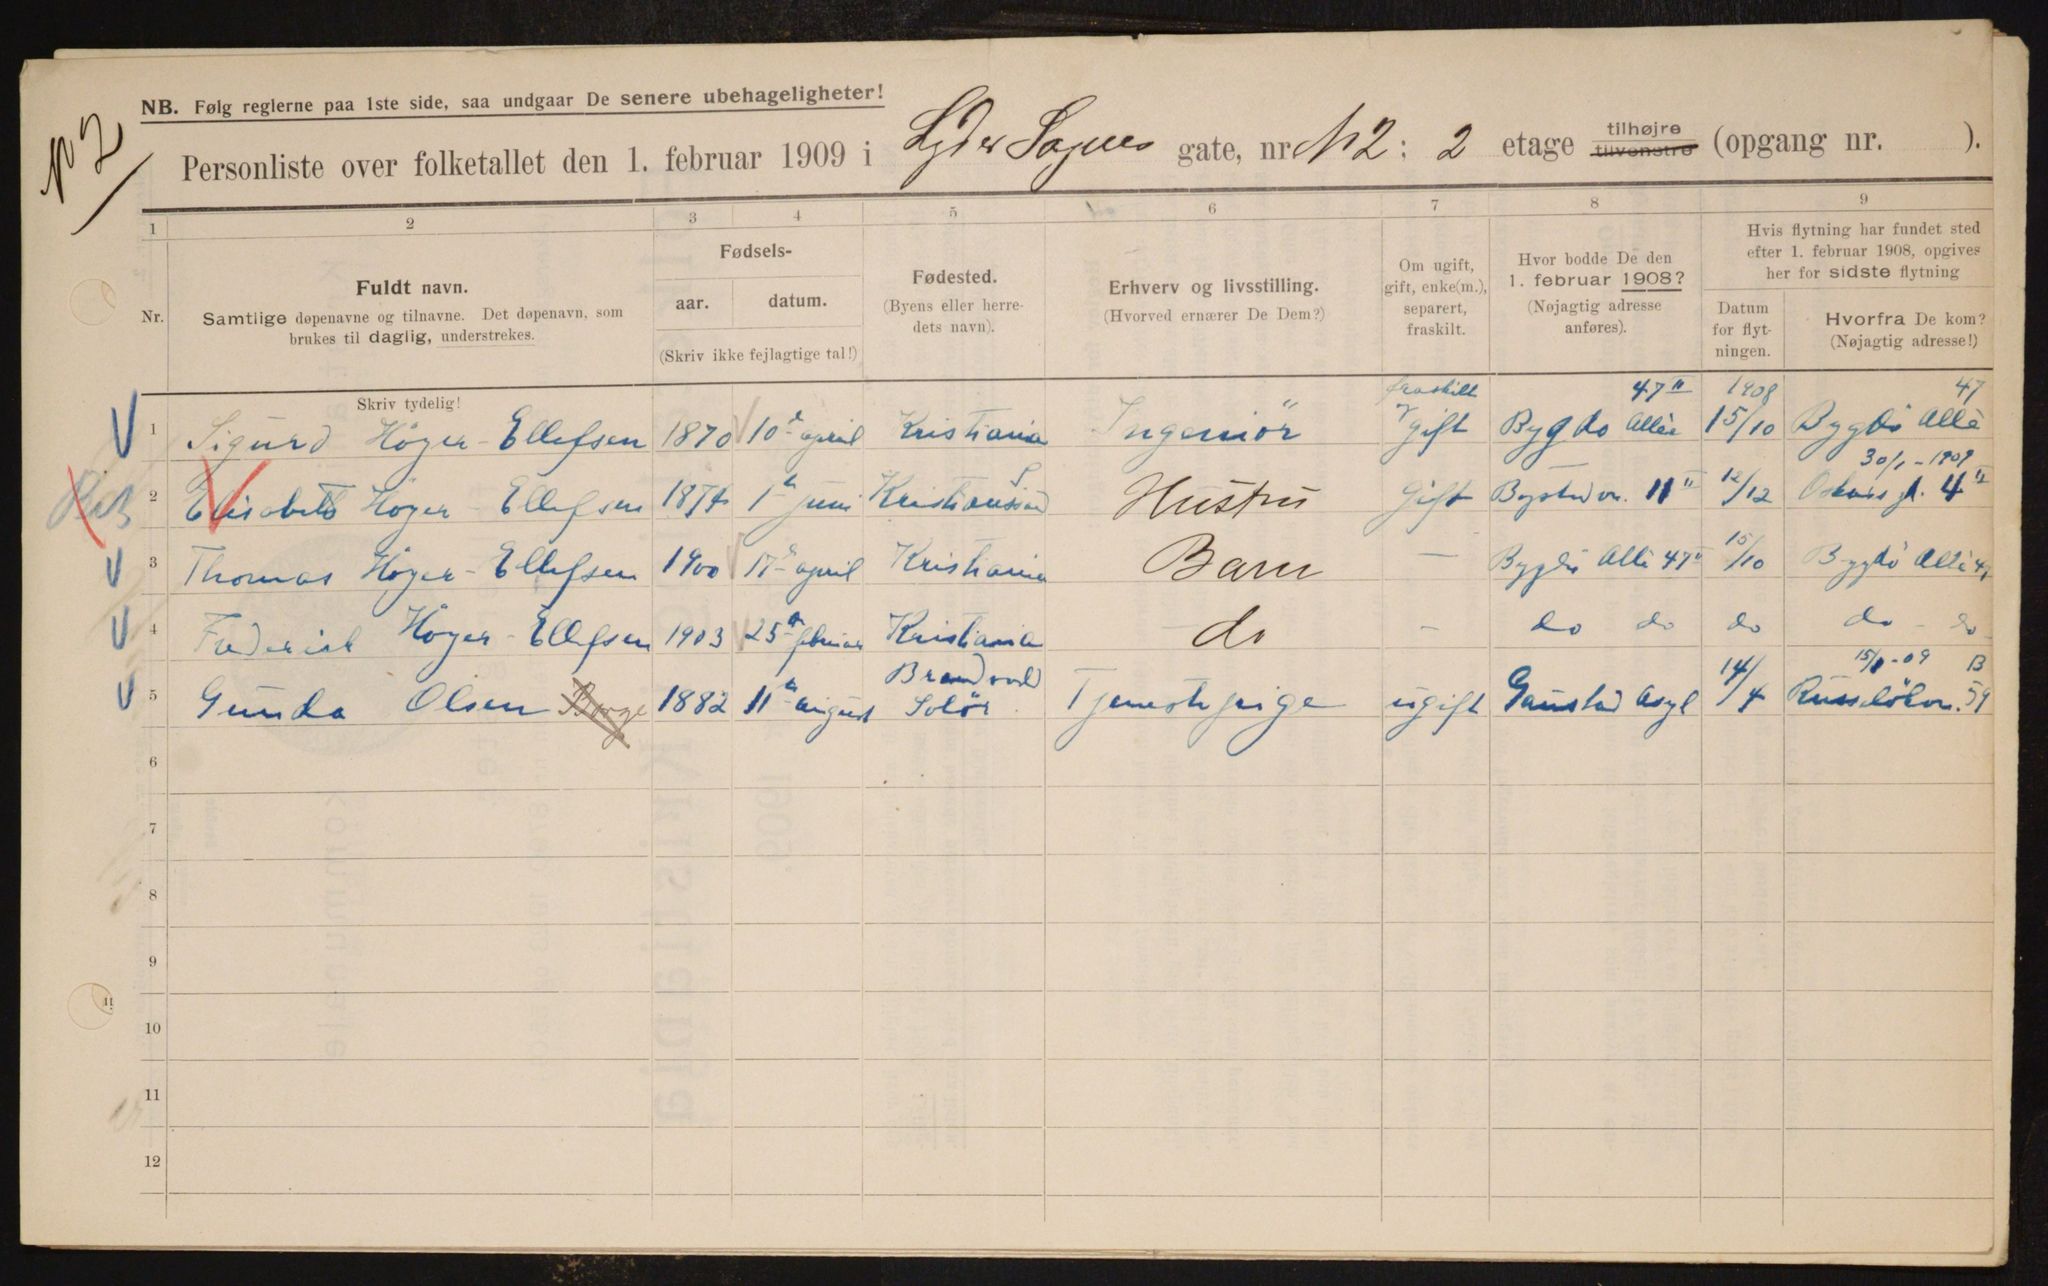 NB. Følg reglerne paa 1ste side, saa undgaar De senere ubehageligheter!
No 2
Personliste over folketallet den 1. februar 1909 i Lyder Sagnes gate, nr. No 2 : 2 etage tilhøjre tilvenstre (opgang nr. ).
1 2 3 4 5 6 7 8 9
Nr.
Fuldt navn.
Samtlige døpenavne og tilnavne. Det døpenavn, som
brukes til daglig, understrekes.
Skriv tydelig!
Fødsels-
aar. datum.
(Skriv ikke fejlagtige tal!)
Fødested.
(Byens eller herre-
dets navn).
Erhverv og livsstilling.
(Hvorved ernærer De Dem?)
Om ugift,
gift, enke(m.),
separert,
fraskilt.
Hvor bodde De den
1. februar 1908?
(Nøjagtig adresse
anføres).
Hvis flytning har fundet sted
efter 1. februar 1908, opgives
her for sidste flytning
Datum
for flyt-
ningen.
Hvorfra De kom?
(Nøjagtig adresse!)
fraskilt 47 II 1908 47
1 Sigurd Höyer-Ellefsen 1870 10de april Kristiania Ingeniör gift Bygdo Allè 15/10 Bygdö Allè
30/1-1909
2 Elisabeth Höyer-Ellefsen 1874 1te juni Kristianssand Hustru Gift 11 II 12/12 Oskars gt. 4 II
3 Thomas Höyer-Ellefsen 1900 17de april Kristiania Barn — Bygdö Allè 47 II 15/10 Bygdö Allè 47
4 Frederik Höyer-Ellefsen 1903 25de februar Kristiania do - do do do do - do
Brandvold 15/1-09 B
5 Gunda Olsen Borge 1882 11te august Solör Tjenestepige ugift Gaustad Asyl 14/4 Russelökvn. 59
6
7
8
9
10
11
12